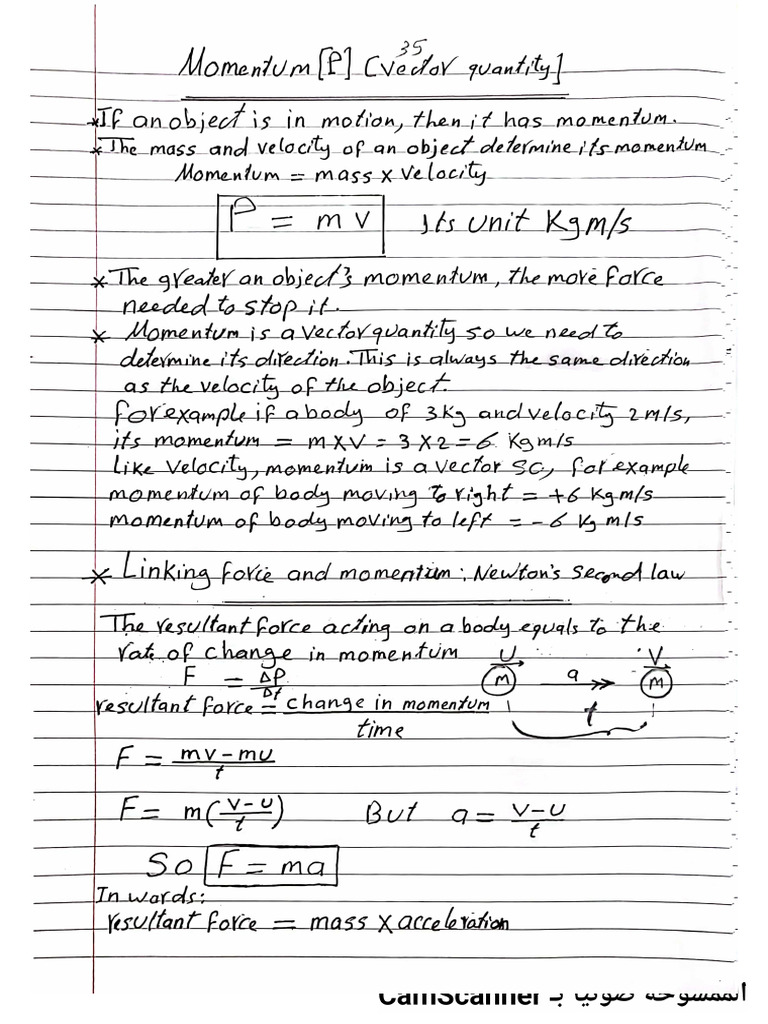 35
Momentum [P] (vector quantity]
* If an object is in motion, then it has momentum.
* The mass and velocity of an object determine its momentum
Momentum = mass x velocity
P = m v Its unit Kg m/s
* The greater an object's momentum, the more force
needed to stop it.
* Momentum is a vector quantity so we need to
determine its direction. This is always the same direction
as the velocity of the object.
for example if a body of 3 Kg and velocity 2 m/s,
its momentum = m x v = 3 x 2 = 6 Kg m/s
Like velocity, momentum is a vector so, for example
momentum of body moving to right = +6 Kg m/s
momentum of body moving to left = -6 Kg m/s
* Linking force and momentum: Newton's second law
The resultant force acting on a body equals to the
rate of change in momentum U V
F = Δp/Δt m a m
resultant force = change in momentum/time t
F = mv-mu/t
F = m(v-u/t) But a = v-u/t
So F = ma
In words:
resultant force = mass x acceleration
الممسوحة ضوئيا بـ CamScanner